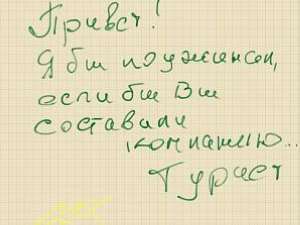 Привет!
Я бы поужинал,
если бы Вы
составили
компанию...
Турист